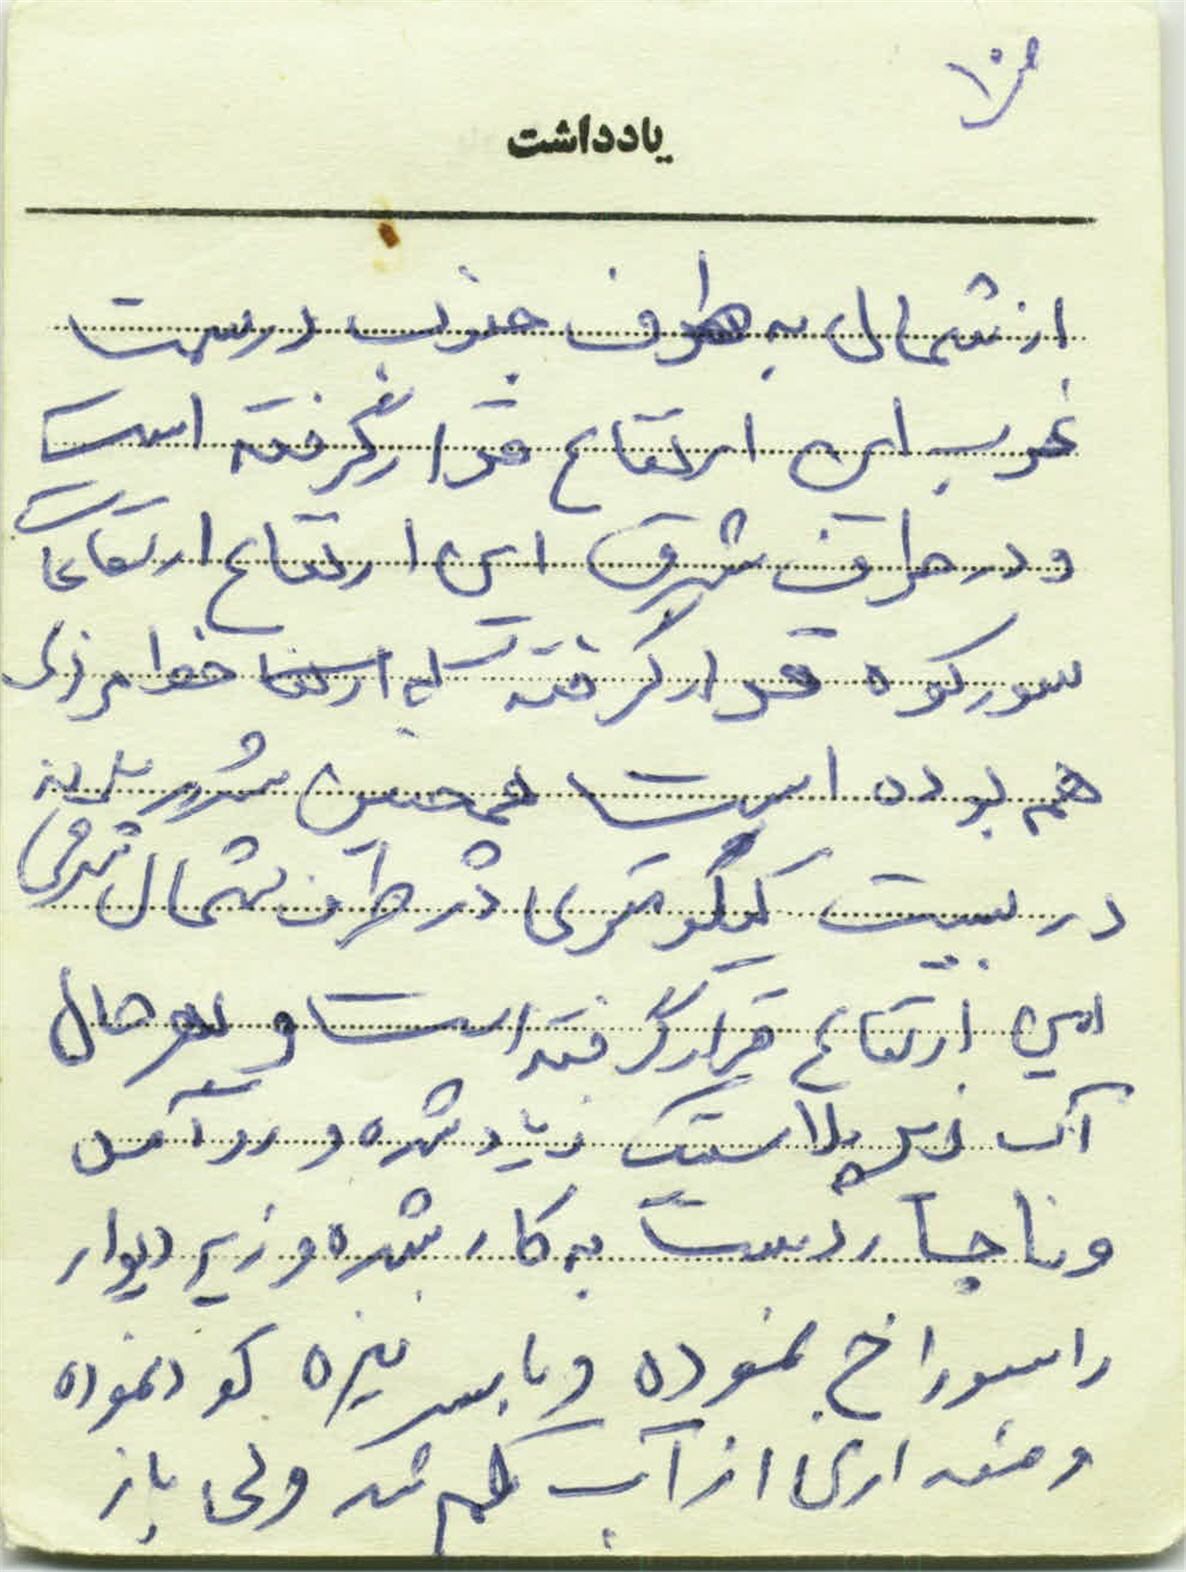 یادداشت
از شمال به طرف جنوب در سمت
غرب این ارتفاع قرار گرفته است
و در طرف شرق این ارتفاع ارتفاعات
سورکوه قرار گرفته که ارتفا خط مرزی
هم بوده است همچنین شهر
در بیست کیلومتری در طرف شمال شرقی
این ارتفاع قرار گرفته است و بهر حال
آب زیر پلاستیک زیاد شده و در آمد
و ناچار دست به کار شده و زیر دیوار
را سوراخ نموده و با سر نیزه گود نموده
و مقداری از آب کم شد ولی باز